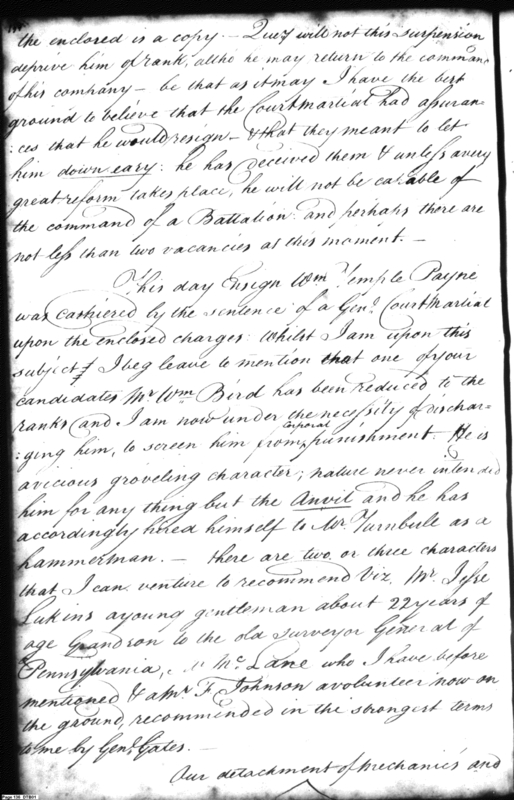 the enclosed is a copy — Query will not this suspension
deprive him of rank, altho he may return to the command
of his company — be that as it may I have the best
ground to believe that the Court martial had assuran-
:ces that he would resign — & that they meant to let
him down easy: he has deceived them & unless a very
great reform takes place, he will not be capable of
the command of a Battalion: and perhaps there are
not less than two vacancies at this moment. —
This day Ensign Wm Temple Payne
was cashiered by the sentence of a Genl. Court Martial
upon the enclosed charges: whilst I am upon this
subject I beg leave to mention that one of your
candidates Mr Wm Bird has been reduced to the
ranks and I am now under the necessity of dischar-
:ging him, to screen him from corporal punishment. He is
a vicious groveling character; nature never intended
him for any thing but the Anvil and he has
accordingly hired himself to Mr. Turnbull as a
hammerman. — there are two or three characters
that I can venture to recommend Viz. Mr. Jesse
Lukins a young gentleman about 22 years of
age Grandson to the old surveyor General of
Pennsylvania, Mc Lane who I have before
mentioned & a Mr. F. Johnson a volunteer now on
the ground, recommended in the strongest terms
to me by Genl. Gates. —
Our detachment of Mechanics and